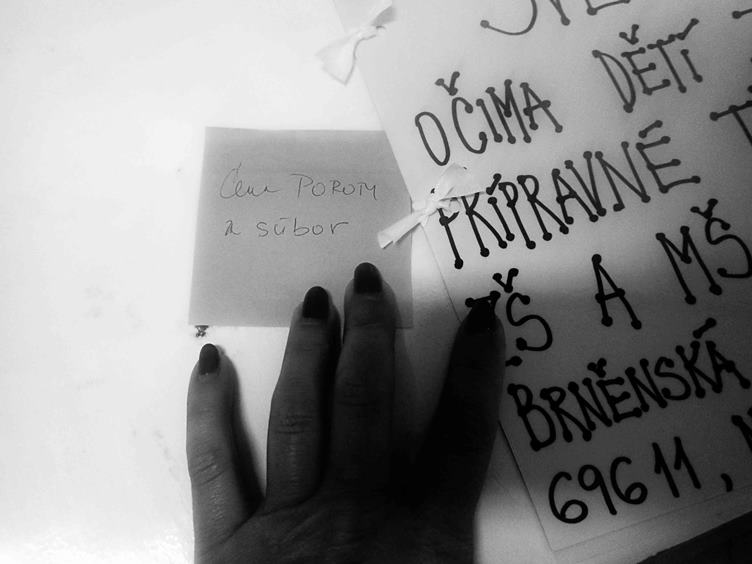 Cena POROTY
za súbor
SVĚ
OČIMA DĚTÍ
PŘÍPRAVNÉ T
ZŠ A MŠ
BRNĚNSKÁ
69611,